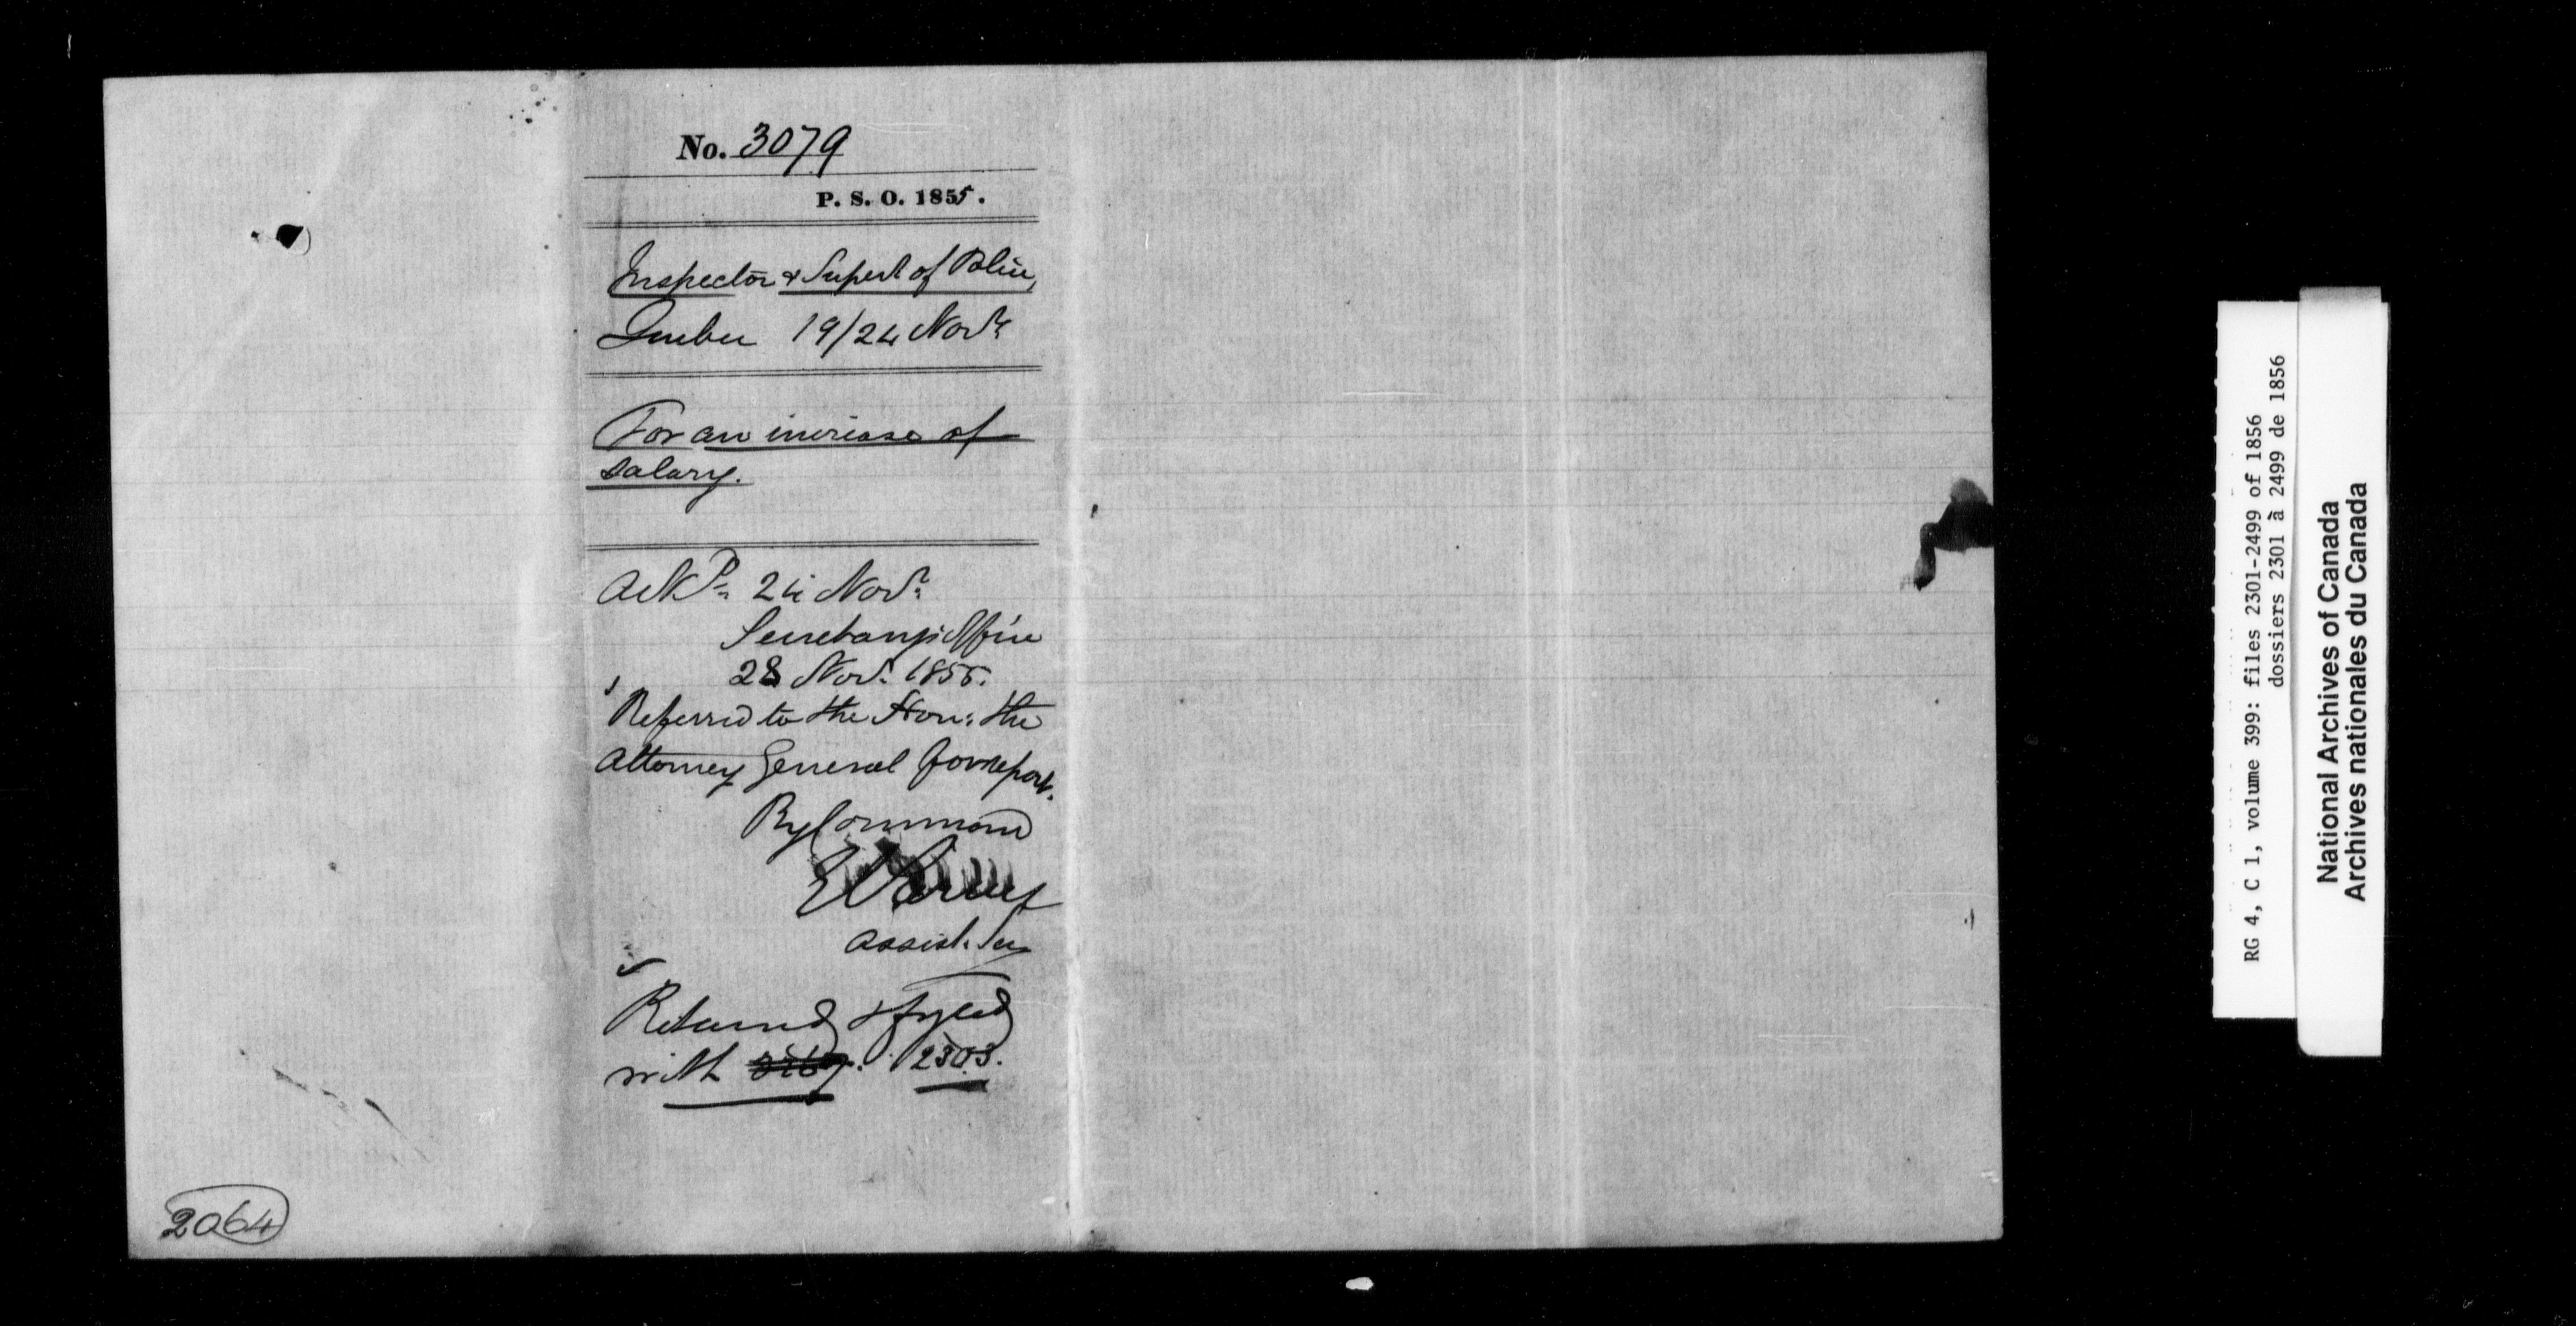 No. 3079
P. S. O. 1855.
Inspector & Supert of Police,
Quebec 19/24 Novr
For an increase of
salary.
Ackd 24 Novr
Secretary's Office
28 Nov. 1855.
Referred to the Hon: the
Attorney General for report.
By Command
E Parent
Assist. Sec
Returned & fyled
with 2303.
2064
RG 4, C 1, volume 399: files 2301-2499 of 1856
dossiers 2301 à 2499 de 1856
National Archives of Canada
Archives nationales du Canada